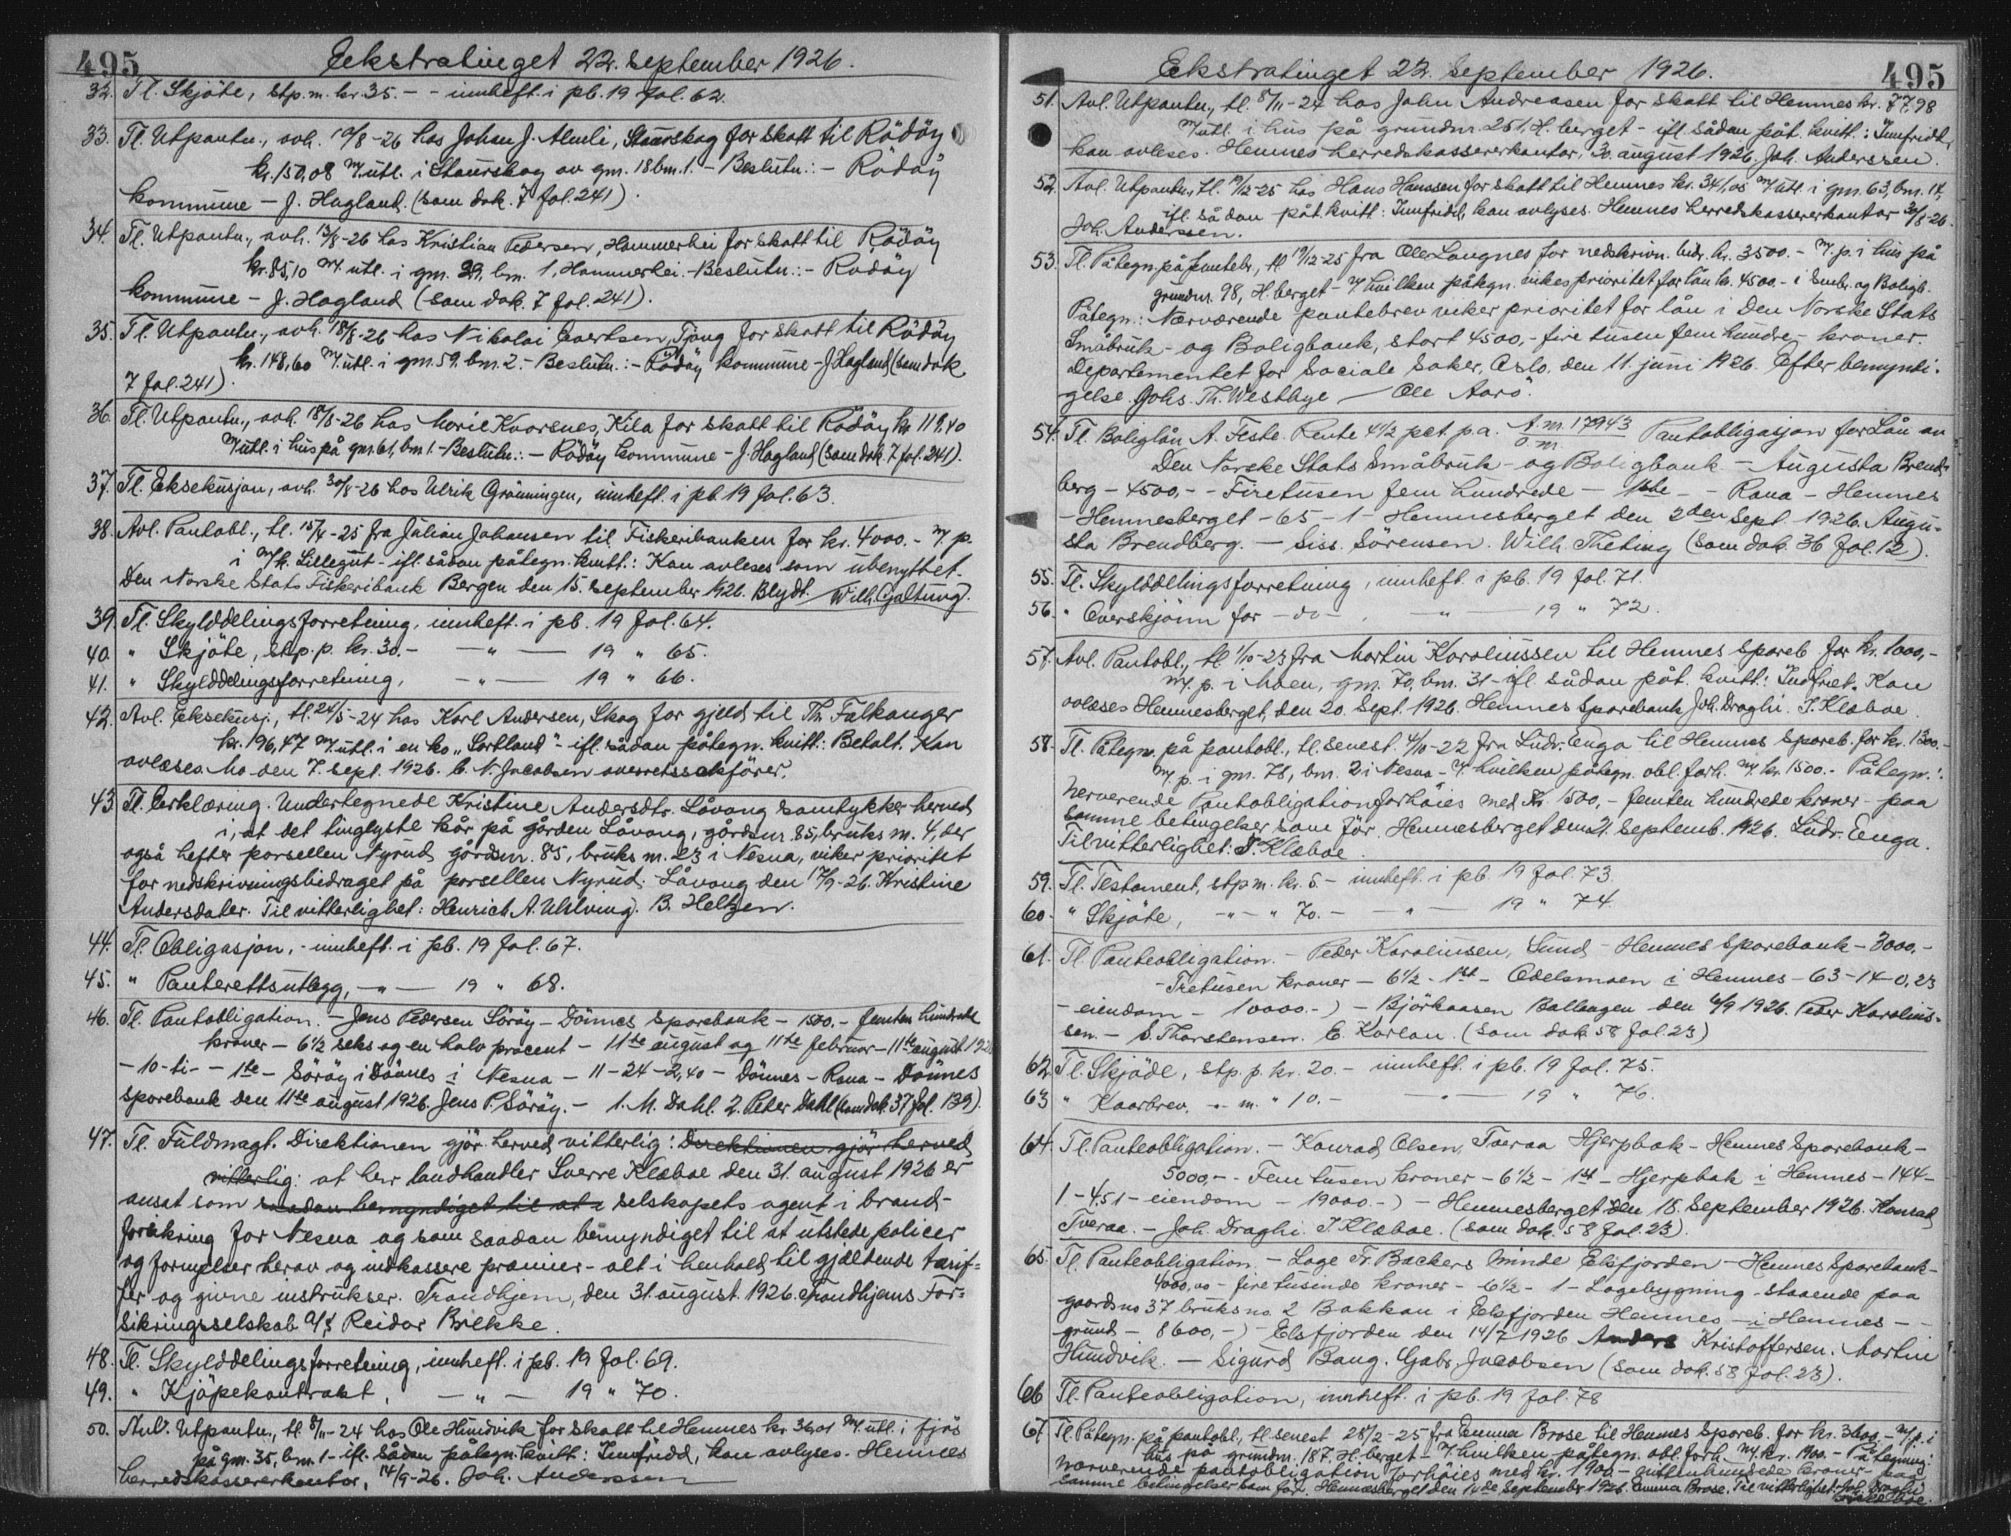 495
Ekstratinget 22. september 1926.
32. Tl. Skjöte, stp. m. kr 35. - - innheft. i pb. 19 fol. 62.
33. Tl. Utpantn., avh. 10/8-26 hos Johan J. Almli, Staurskog for skatt til Rödöy
kr. 150,08 m/utl. i Staurskog av gm. 18 bm. 1. - Beslutn.: - Rödöy
kommune - J. Hagland. (som dok. 7 fol. 241).
34. Tl. Utpantn., avh. 13/8-26 hos Kristian Pedersen, Hammerhei for skatt til Rödöy
kr. 85,10 m/utl. i gm. 29, bm. 1, Hammerhei. - Beslutn.: - Rödöy
kommune - J. Hagland (som dok. 7 fol. 241).
35. Tl. Utpantn., avh. 18/8-26 hos Nikolai Evertsen, Tjong for skatt til Rödöy
kr. 148,60 m/utl. i gm. 59. bm. 2. - Beslutn.: - Rödöy kommune - J. Hagland (som dok
7 fol. 241).
36. Tl. Utpantn., avh. 18/8-26 hos Marie Kvarsnes, Kila for skatt til Rödöy kr 119,40
m/utl. i hus på gm. 61, bm. 1. - Beslutn.: - Rödöy kommune - J. Hagland (som dok. 7 fol. 241).
37. Tl. Eksekusjon, avh. 30/8-26 hos Ulrik Grönningen, innheft. i pb 19 fol. 63.
38. Avl. Pantobl., tl. 15/4-25 fra Julian Johansen til Fiskeribanken for kr. 4000.- m/p.
i m/k. Lillegut - ifl. sådan påtegn. kvitt.: Kan avleses som ubenyttet.
Den Norske Stats Fiskeribank Bergen den 15. september 1926. Blydt. / Wilh. Galtung.
39. Tl. Skylddelingsforretning, innheft. i pb. 19 fol. 64.
40. " Skjöte, stp. p. kr. 30.- - " - 19 " 65.
41. " Skylddelingsforretning, - " - 19 " 66.
42. Avl. Eksekusj., tl. 24/5-24 hos Karl Andersen, Skog for gjeld til Th. Falkanger
kr. 196,47 m/utl. i en ko "Sortland" - ifl. sådan påtegn. kvitt.: Betalt. Kan
avlæses. Mo den 7. sept. 1926. C. N. Jacobsen overretssakförer.
43 Tl. Erklæring. Undertegnede Kristine Andersdtr. Låvong samtykker herved
i, at det tinglyste kår på gården Låvong, gårdsnr. 85, bruks nr. 4, der
også hefter parsellen Nyrud, gårdsnr. 85, bruks nr. 23 i Nesna, viker prioritet
for nedskrivningsbidraget på parsellen Nyrud. Låvong den 17/9-26. Kristine
Andersdater. Til vitterlighet: Henrich A. Uhlving. B. Heltzen.
44. Tl. Obligasjon, - innheft. i pb. 19 fol. 67.
45. " Panterettsutlegg, - " - 19 " 68.
46. Tl. Pantobligation. - Jens Pedersen Söröy - Dönnes Sparebank - 1500.- femten hundrede
kroner - 6½ seks og en halv procent - 11te august og 11te februar - 11te august 1926
- 10 - ti - - 1ste - Söröy i Dönnes i Nesna - 11 - 24 - 2,40 - Dönnes - Rana - Dönnes
Sparebank den 11te august 1926. Jens P. Söröy. - 1. M. Dahl. 2. Peter Dahl (som dok. 37 fol. 139).
47. Tl. Fuldmagt. Direktionen gjör herved vitterlig: Direktionen gjör herved
vitterlig: at herr landhandler Sverre Klæboe den 31. august 1926 er
ansat som saadan bemyndiget til at selskapets agent i brand-
forsikring for Nesna og som saadan bemyndiget til at utstede policer
og fornyelser herav og indkassere præmier - alt i henhold til gjældende tarif-
fer og givne instrukser. Trondhjem, den 31. august 1926. Trondhjems For-
sikringsselskab A/S, Reidar Brekke.
48. Tl. Skylddelingsforretning, innheft. i pb. 19 fol. 69.
49. " Kjöpekontrakt, - " - 19 " 70.
50. Avl. Utpantn., tl. 8/11-24 hos Ole Hundvik for skatt til Hemnes kr. 36,01 m/utl. i fjös
på gm. 35, bm. 1 - ifl. sådan påtegn. kvitt: Innfridd, kan avlyses. Hemnes
herredskassererkontor, 14/9-26. Joh. Anderssen
495
Ekstratinget 22. september 1926.
51. Avl. Utpantn., tl. 8/11-24 hos John Andreasen for skatt til Hemnes kr. 77,98
m/utl. i hus på grundnr. 251, H.berget - ifl. sådan påt. kvitt.: Innfridd,
kan avleses. Hemnes herredskassererkontor, 30. august 1926. Joh. Anderssen.
52. Avl. Utpantn., tl. 19/12-25 hos Hans Hanssen for skatt til Hemnes kr. 341,05 m/utl. i gm. 63, bm. 14,
ifl. sådan påt. kvitt: Innfridd, kan avlyses. Hemnes herredskassererkontor 30/8-26.
Joh. Anderssen.
53. Tl. Påtegn. på pantebr., tl 19/12-25 fra Ole Langnes for nedskrivn. bidr. kr. 3500.- m/p. i hus på
grundnr. 98, H.berget - v/hvilken påtegn. vikes prioritet for lån kr. 4500.- i Småbr. og Boligb.
Påtegn.: Nærværende pantebrev viker prioritet for lån i Den Norske Stats
Småbruk- og Boligbank, stort 4500,- fire tusen fem hundre - kroner.
Departementet for Sociale Saker, Oslo, den 11. juni 1926. Efter bemyndi-
gelse. Johs. Th. Westbye / Ole Aarö.
54. Tl. Boliglån A. Feste. Rente 4½ pct. p.a. A.nr. 17943 Pantobligasjon for Lån av
Den Norske Stats Småbruk- og Boligbank. - Augusta Brend-
berg - 4500,- - Firetusen fem hundrede - 1ste - - Rana - Hemnes
- Hemnesberget - 65 - 1 - Hemnesberget den 2den Sept 1926. Augu-
sta Brendberg. - Siss. Sörensen. Wilh. Theting (som dok. 36 fol. 12).
55. Tl. Skylddelingsforretning, innheft. i pb. 19 fol. 71.
56. " Overskjönn for - do - , - " - 19 " 72.
57. Avl. Pantobl., tl 1/10-23 fra Martin Karoliussen til Hemnes Spareb. for kr. 1000,-
m/p. i Moen, gm. 70, bm. 31 - ifl. sådan påt. kvitt.: Indfriet. Kan
avlæses Hemnesberget, den 20. Sept. 1926. Hemnes Sparebank Joh. Draghi. S. Klæboe.
58. Tl. Påtegn. på pantobl., tl. senest. 4/10-22 fra Ludr. Enga til Hemnes Spareb. for kr. 1300.-
m/p. i gm. 78, bm. 2 i Nesna - v/hvilken påtegn. obl. forh. m/kr. 1500.- Påtegn.:
Nerverende Pantobligation forhöies med Kr 1500,- femten hundrede kroner - paa
samme betingelser som för. Hemnesberget den 21. septemb. 1926. Ludr. Enga.
Til vitterlighet: S. Klæboe.
59. Tl. Testament, stp m. kr. 6.- innheft. i pb. 19 fol. 73.
60. " Skjöte, - " - " 70.- - " - 19 " 74.
61. Tl. Panteobligation. - Peder Karoliusen, Sund - Hemnes Sparebank - 3000,-
- Tretusen kroner - 6½ - 1st - Odelsmoen i Hemnes - 63 - 14 - 0,23
- eiendom - 10000.-) - Björkaasen Ballangen den 6/9 1926. Peder Karolius-
sen - S. Thorstensen. E. Karlan. (som dok 58 fol. 23)
62. Tl. Skjöde, stp. p. kr. 20.- innheft. i pb. 19 fol. 75.
63 " Kaarbrev. - " - m. " 10.- - " - 19 " 76.
64. Tl. Panteobligation. - Konrad Olsen Tveraa Hjerpbak - Hemnes Sparebank -
5000,- - Fem tusen kroner - 6½ - 1st - Hjerpbak i Hemnes - 144 -
1 - 4.51 - eiendom - 19000.-) - Hemnesberget den 18. September 1926. Konrad
Tveraa. - Joh. Draghi. S Klæboe. (som dok. 58 fol. 23).
65. Tl. Panteobligation - Loge Fr. Backers Minde Elsfjorden - Hemnes Sparebank -
4000,00 - fire tusinde kroner - 6½ - 1 - Logebygning - staaende paa
gaardsno 37 bruksno. 2 Bakkan i Elsfjorden Hemnes - i Hemnes -
grund - 8600,-) - Elsfjorden den 14/7-1926 Anders Kristoffersen. Martin
Hundvik. - Sigurd Baug. Gabr. Jacobsen (som dok. 58 fol. 23).
66 Tl. Panteobligation, innheft. i pb. 19 fol. 78
67. Tl. Påtegn. på pantobl., tl. senest 28/2-25 fra Emma Brose til Hemnes Spareb. for kr. 3600.- m/p. i
hus på grundnr. 187. H.berget - v/hvilken påtegn. obl. forh. m/kr. 1900.- Påtegning:
Nærværende pantobligation forhöies med kr. 1900 - nittenhundrede kroner - paa
samme betingelser som för. Hemnesberget den 14de September 1926. Emma Brose. Til vitterlighet: Joh. Draghi